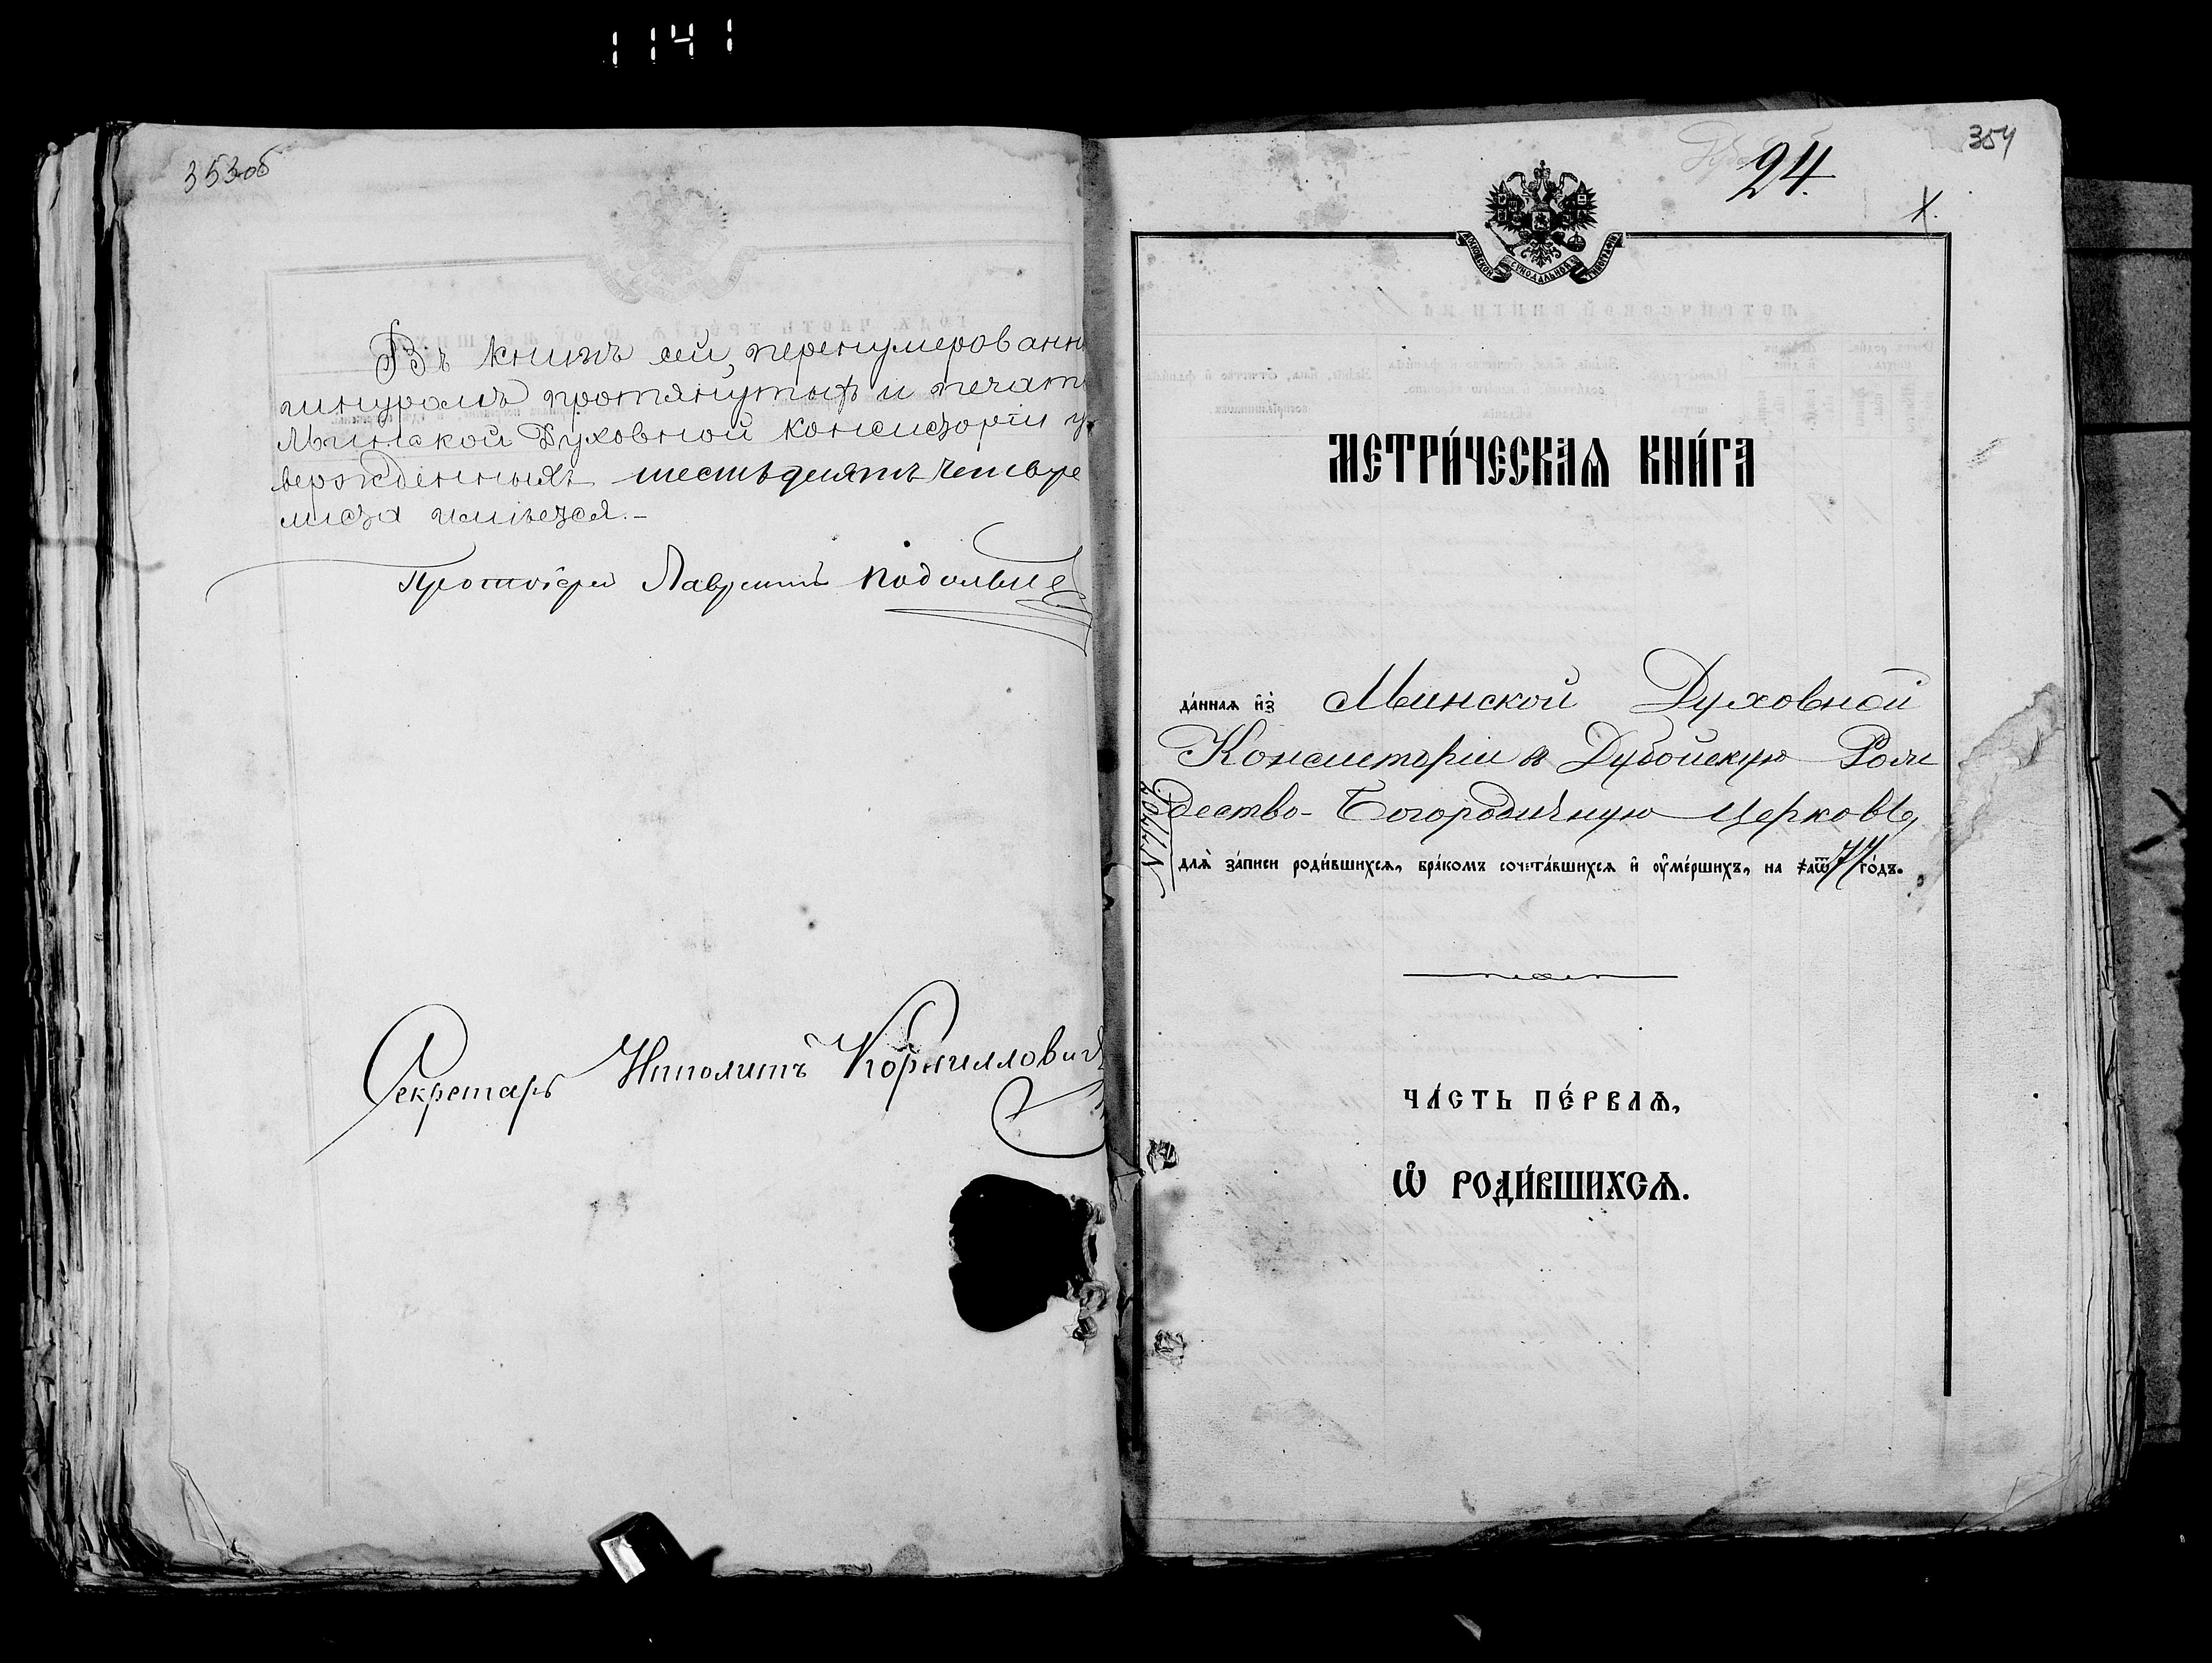 1141
353об
Въ книгѣ сей, перенумерованн
шнуромъ протянутыхъ и печат
Минской Духовной Консисторіи у
вержденныхъ шестьдесятъ четыре
листа имѣется.-
Протоіерей Лаврентій
Секретарь Ипполитъ Корнилловичъ
354
24.
X.
МОСКОВСКОЙ СѴНОДАЛЬНОЙ ТИПОГРАФІИ
МЕТРИ́ЧЕСКАѦ КНИ́ГА
да́ннаѧ и҆з̾ Минской Духовной
Консисторіи въ Дубойскую Рож
дество-Богородичную церковь,
длѧ̀ за́писи роди́вшихсѧ, бра́комъ сочета́вшихсѧ и҆ ѹ҆ме́ршихъ, на ҂аѿ77 го́дъ.
ЧА́СТЬ ПЕ́РВАѦ,
Ѽ РОДИ́ВШИХСѦ.